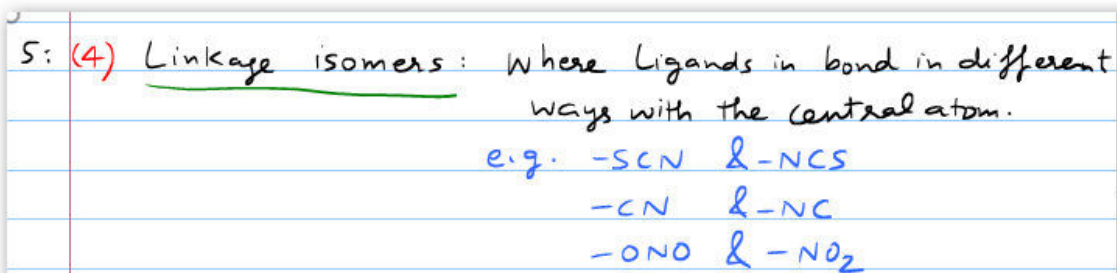 5: (4) Linkage isomers: Where Ligands in bond in different
ways with the central atom.
e.g. -SCN & -NCS
-CN & -NC
-ONO & -NO₂